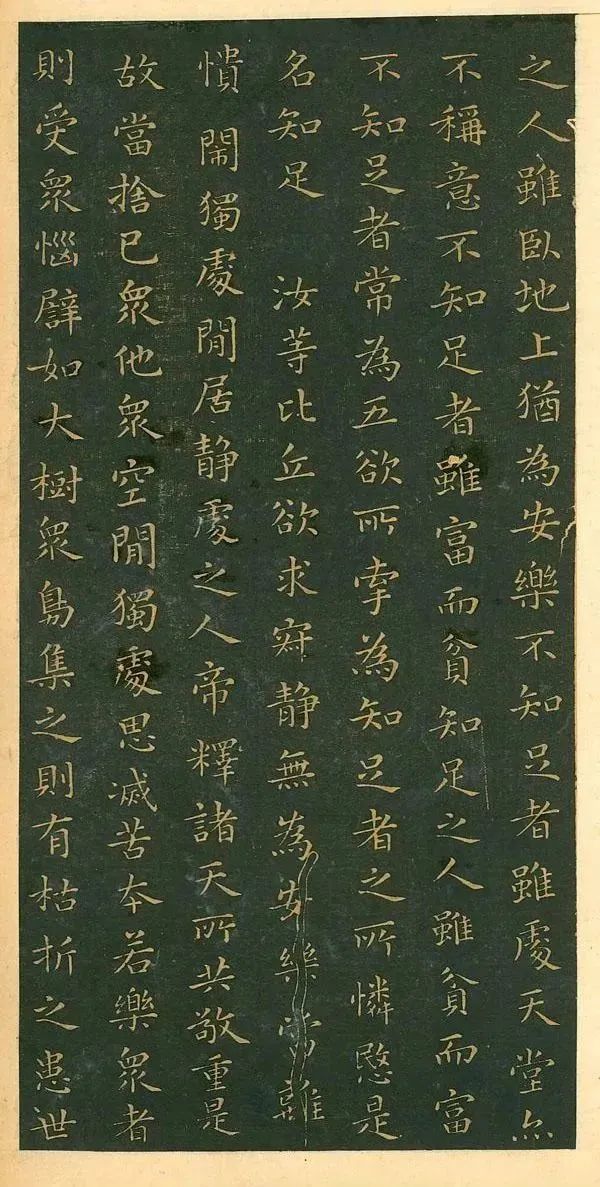 之人雖臥地上猶為安樂不知足者雖處天堂亦
不稱意不知足者雖富而貧知足之人雖貧而富
不知足者常為五欲所牽為知足者之所憐愍是
名知足 汝等比丘欲求寂靜無為安樂當離
憒閙獨處閒居靜處之人帝釋諸天所共敬重是
故當捨己衆他衆空閒獨處思滅苦本若樂衆者
則受衆惱譬如大樹衆鳥集之則有枯折之患世